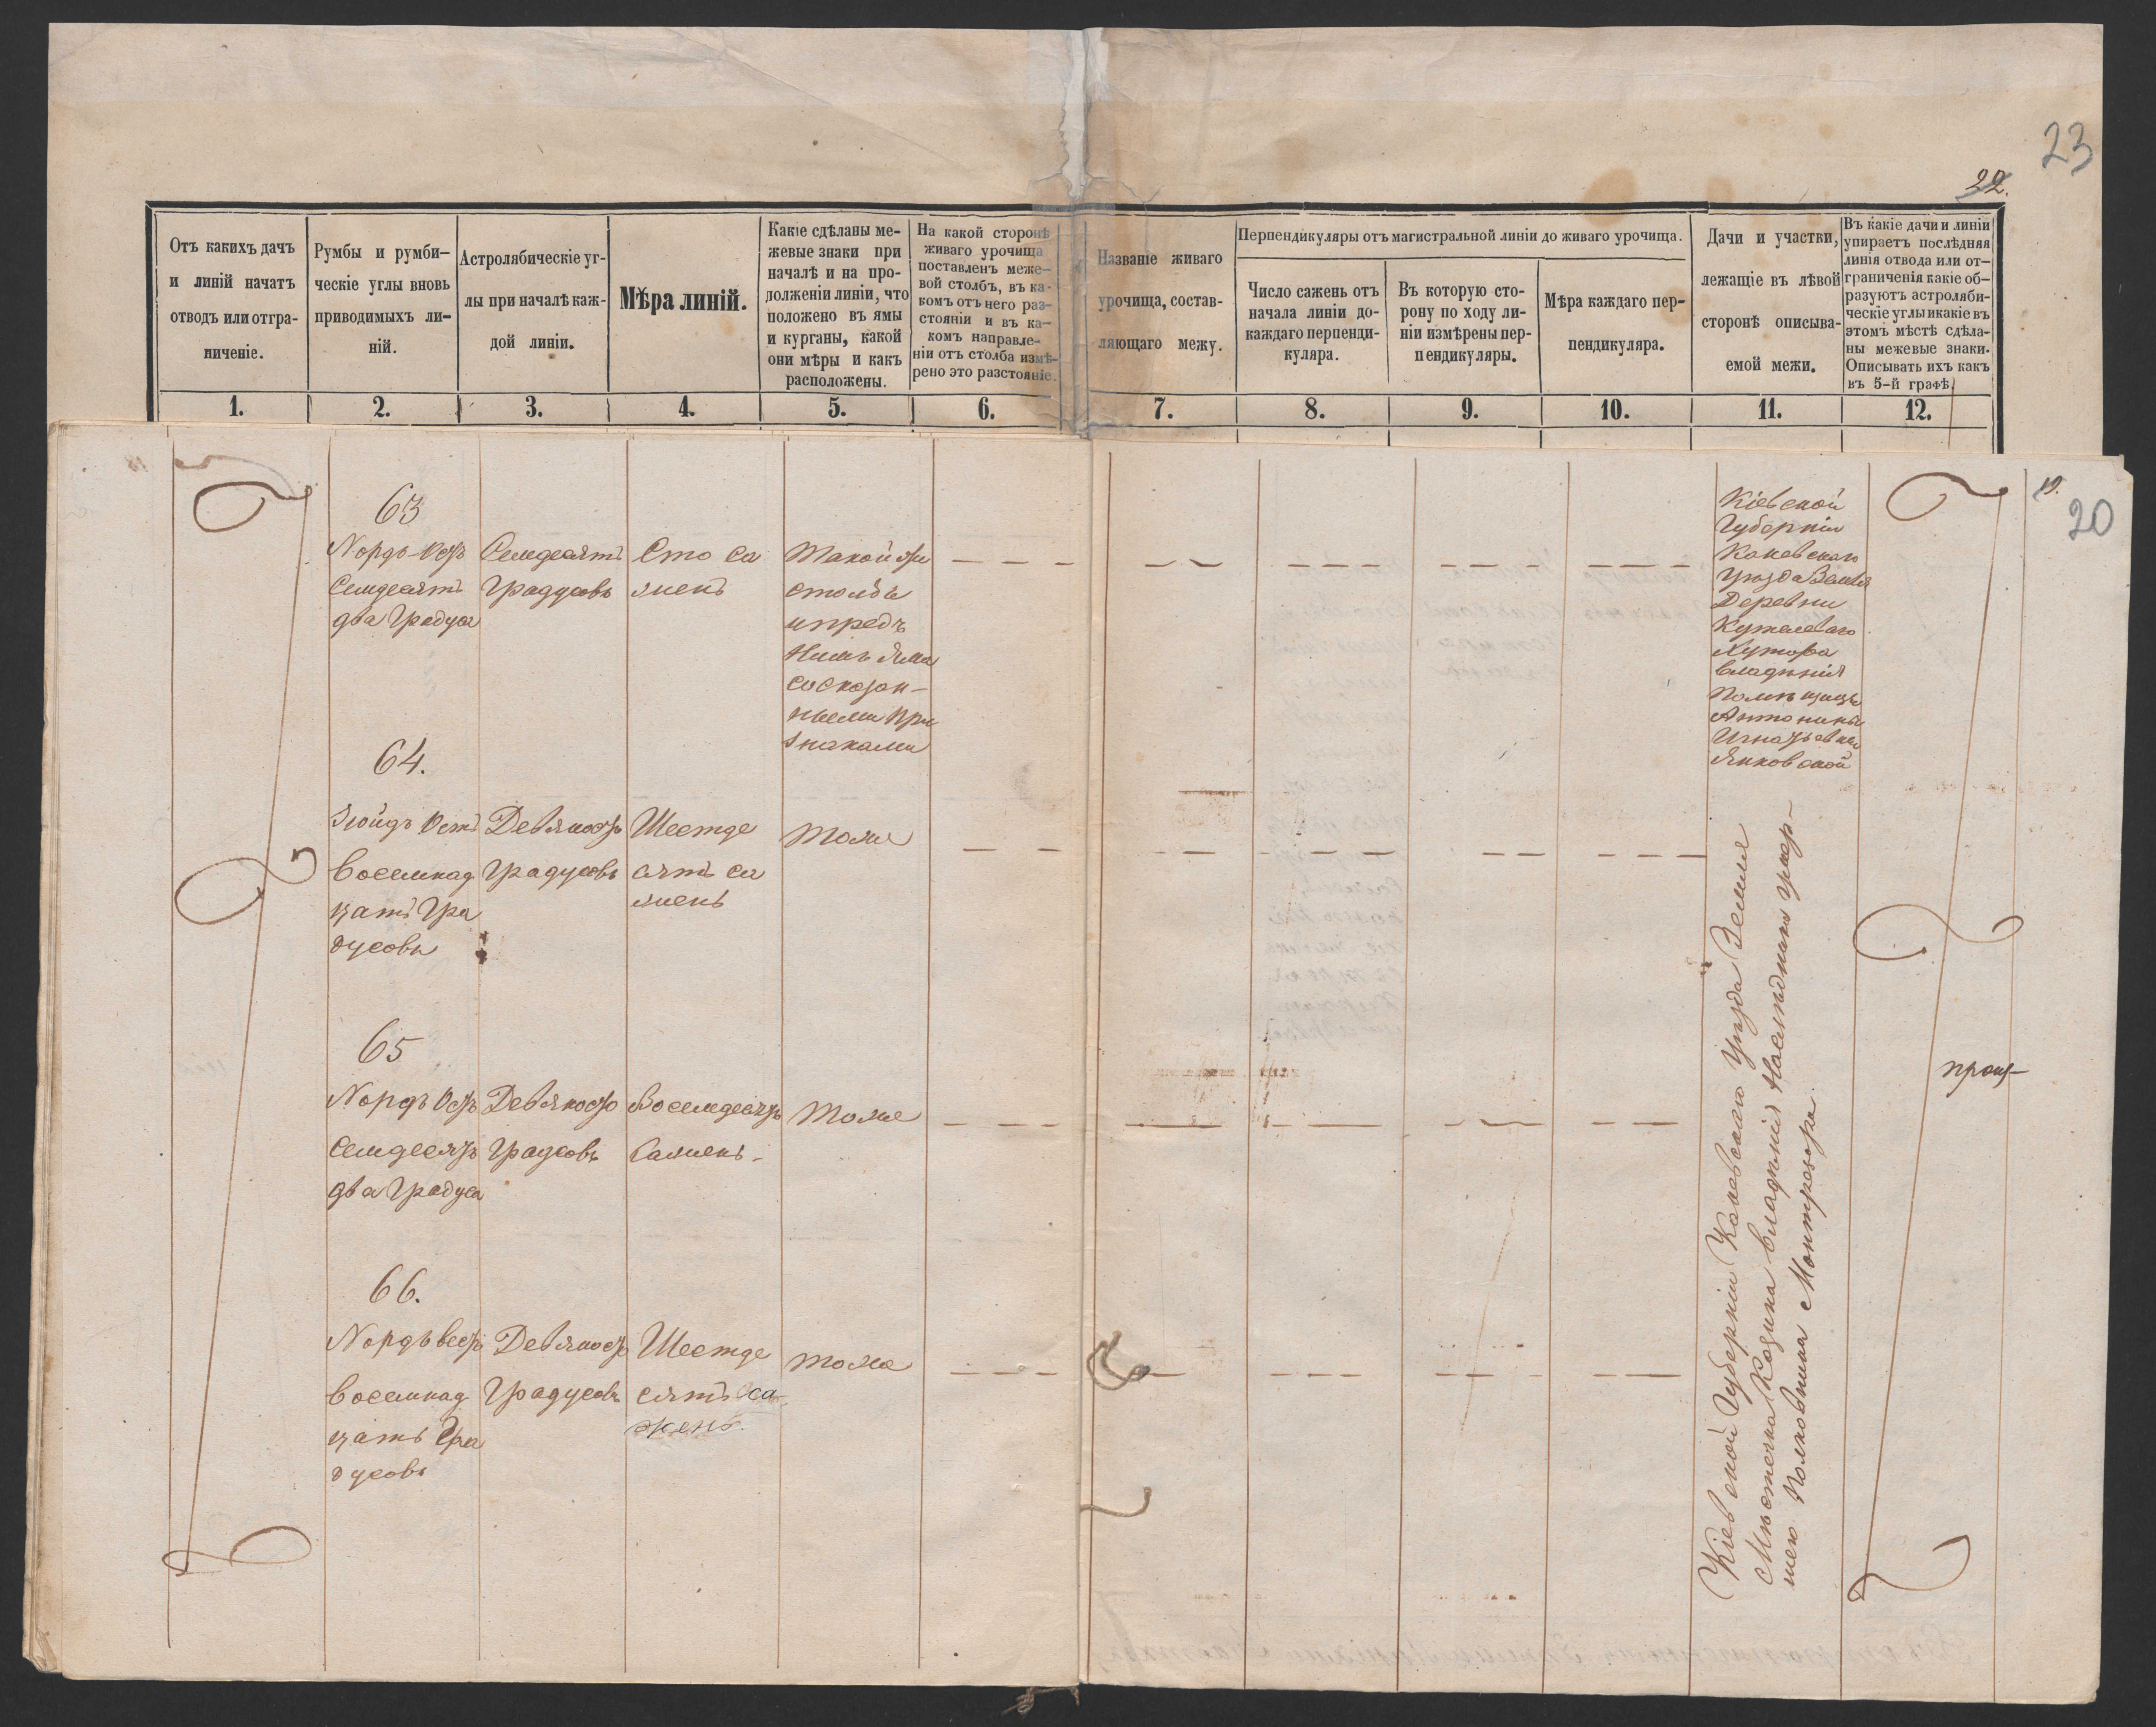 23
22.
Отъ какихъ дачъ
и линій начатъ
отводъ или отгра-
ниченіе.
Румбы и румби-
ческіе углы вновь
приводимыхъ ли-
ній.
Астролябическіе уг-
лы при началѣ каж-
дой линіи.
Мѣра линій.
Какіе сдѣланы ме-
жевые знаки при
началѣ и на про-
долженіи линіи, что
положено въ ямы
и курганы, какой
они мѣры и какъ
расположены.
На какой сторонѣ
живаго урочища
поставленъ меже-
вой столбъ, въ ка-
комъ отъ него раз-
стояніи и въ ка-
комъ направле-
ніи отъ столба измѣ-
рено это разстояніе.
Названіе живаго
урочища, состав-
ляющаго межу.
Перпендикуляры отъ магистральной линіи до живаго урочища.
Число сажень отъ
начала линіи до-
каждаго перпенди-
куляра.
Въ которую сто-
рону по ходу ли-
ніи измѣрены пер-
пендикуляры.
Мѣра каждаго пер-
пендикуляра.
Дачи и участки,
лежащіе въ лѣвой
сторонѣ описыва-
емой межи.
Въ какіе дачи и линіи
упираетъ послѣдняя
линія отвода или от-
граниченія какіе об-
разуютъ астроляби-
ческіе углы и какіе въ
этомъ мѣстѣ сдѣла-
ны межевые знаки.
Описывать ихъ какъ
въ 5-й графѣ.
1. 2. 3. 4. 5. 6. 7. 8. 9. 10. 11. 12.
19.
20
63
Nордъ-Остъ
Семдесятъ
два Градуса
Семдесятъ
Градусовъ
Сто са
женъ
Такой же
столбъ
и предъ
нимъ яма
со сказан-
ными при
знаками
Кіевской
Губерніи
Каневскаго
Уѣзда Земля
Деревни
Кужелеваго
Хутора
владѣнія
Помѣщицы
Антонины
Игнатьевны
Янковской
64.
Зюйдъ Остъ
Восемнад
цать Гра
дусовъ
Девяносто
Градусовъ
Шестде
сятъ са
женъ
тоже
65
Nордъ Остъ
Семдесятъ
два Градуса
Девяносто
Градусовъ
Восемдесятъ
Саженъ-
тоже
66.
Nордъ вестъ
Восемнад
цать Гра
дусовъ
Девяносто
Градусовъ
Шестде
сятъ са-
жень.
тоже
Кіевской Губерніи Каневскаго Уѣзда Земля
Мѣстечка Козина владѣнія Наслѣдники умер-
шего Полковника Монтрезора.